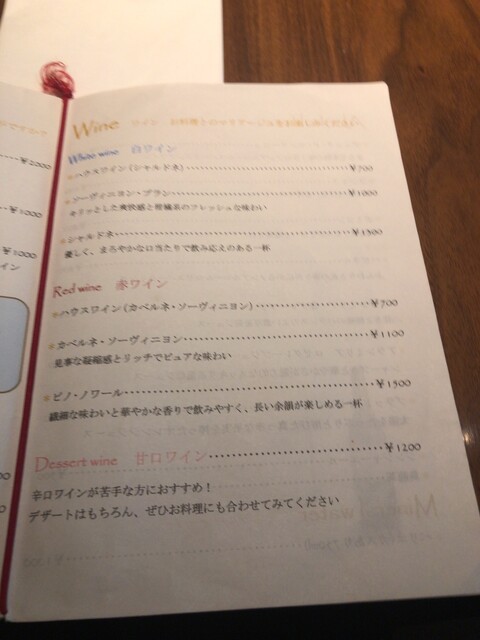 Wine ワイン お料理とのマリアージュをお楽しみください。
White wine 白ワイン
ハウスワイン（シャルドネ）‥‥‥‥‥‥‥‥‥‥‥¥700
ソーヴィニヨン・ブラン‥‥‥‥‥‥‥‥‥‥‥‥¥1000
キリッとした爽快感と柑橘系のフレッシュな味わい
シャルドネ‥‥‥‥‥‥‥‥‥‥‥‥‥‥‥‥‥¥1300
優しく、まろやかな口当たりで飲み応えのある一杯
Red wine 赤ワイン
ハウスワイン（カベルネ・ソーヴィニヨン）‥‥‥‥‥‥¥700
カベルネ・ソーヴィニヨン‥‥‥‥‥‥‥‥‥‥‥¥1100
見事な凝縮感とリッチでピュアな味わい
ピノ・ノワール‥‥‥‥‥‥‥‥‥‥‥‥‥‥‥¥1500
繊細な味わいと華やかな香りで飲みやすく、長い余韻が楽しめる一杯
Dessert wine 甘口ワイン‥‥‥‥‥‥‥‥‥‥¥1200
辛口ワインが苦手な方におすすめ！
デザートはもちろん、ぜひお料理にも合わせてみてください
¥2000
¥1000
¥1000
イン